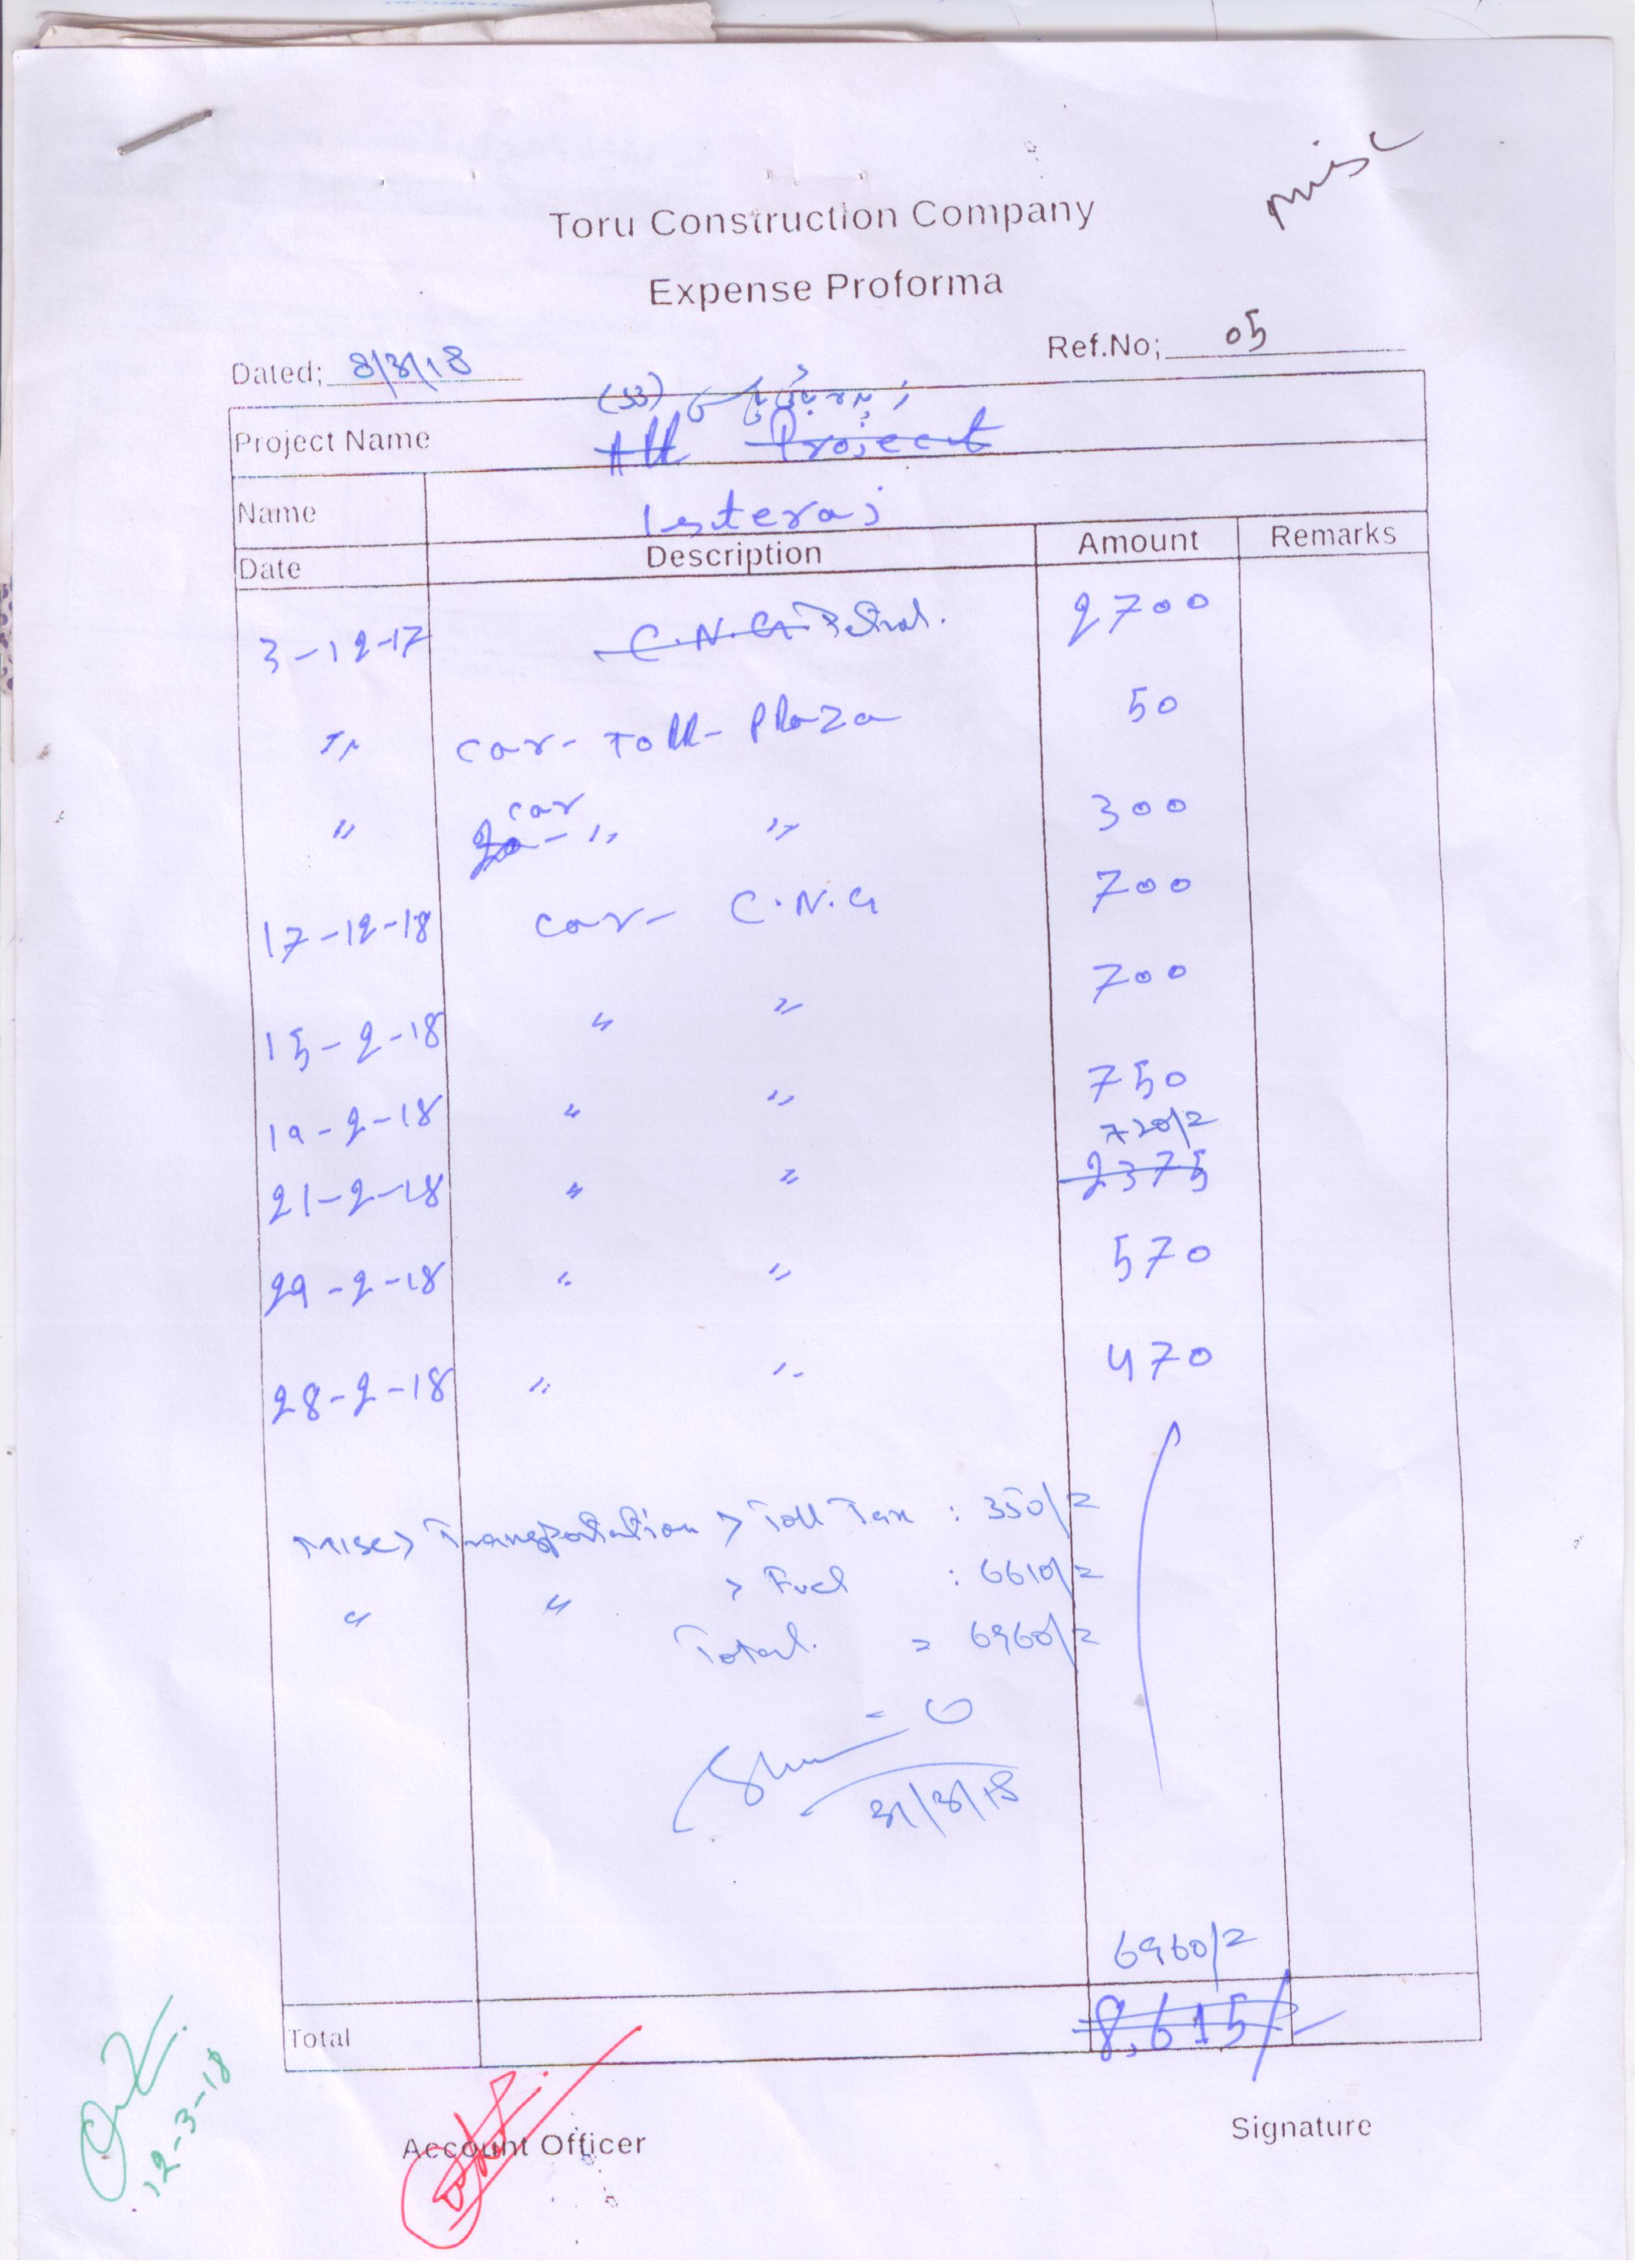 misc
Toru Construction Company
Expense Proforma
Ref.No; 05
Dated; 8/3/18
(33)
Project Name All Project
Name Isteraj
Date Description Amount Remarks
3-12-17 C.N.G Petrol. 2700
" car- Toll- Plaza 50
" car - " " 300
17-12-18 car- C.N.G 700
15-2-18 " " 700
19-2-18 " " 750
720/=
21-2-18 " " 2375
29-2-18 " " 570
28-2-18 " " 470
Misc > Transportation > Toll Tax : 350/=
" " > Fuel : 6610/=
Total. = 6960/=
6960/=
Total 8,615/-
12-3-18
Account Officer
Signature